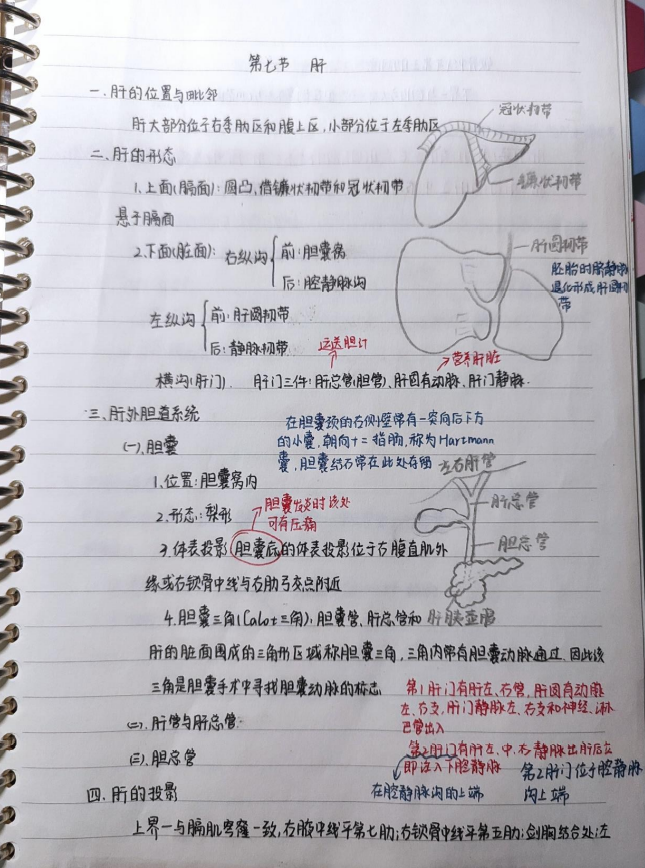 第七节 肝
一.肝的位置与毗邻
肝大部分位于右季肋区和腹上区,小部分位于左季肋区
冠状韧带
二.肝的形态
1.上面(膈面):圆凸,借镰状韧带和冠状韧带
镰状韧带
悬于膈面
2.下面(脏面):右纵沟
前:胆囊窝
后:腔静脉沟
肝圆韧带
胚胎时脐静脉
退化形成肝圆韧
带
左纵沟
前:肝圆韧带
后:静脉韧带
运送胆汁
营养肝脏
横沟(肝门). 肝门三件:肝总管(胆管)、肝固有动脉、肝门静脉.
三.肝外胆道系统
在胆囊颈的右侧壁常有一突向后下方
(一).胆囊
的小囊,朝向十二指肠,称为Hartmann
囊,胆囊结石常在此处存留
左右肝管
1.位置:胆囊窝内
胆囊发炎时该处
可有压痛
肝总管
2.形态:梨形
3.体表投影:胆囊底的体表投影位于右腹直肌外
胆总管
缘或右锁骨中线与右肋弓交点附近
4.胆囊三角(Calot三角):胆囊管、肝总管和
肝胰壶腹
肝的脏面围成的三角形区域称胆囊三角,三角内常有胆囊动脉通过.因此该
三角是胆囊手术中寻找胆囊动脉的标志
第1肝门有肝左、右管,肝固有动脉
左、右支,肝门静脉左、右支和神经、淋
巴管出入
(二).肝管与肝总管.
(三).胆总管
第2肝门有肝左、中、右静脉出肝后立
即注入下腔静脉
第2肝门位于腔静脉
沟上端
在腔静脉沟的上端
四.肝的投影
上界—与膈肌穹窿一致,右腋中线平第七肋;右锁骨中线平第五肋;剑胸结合处;左